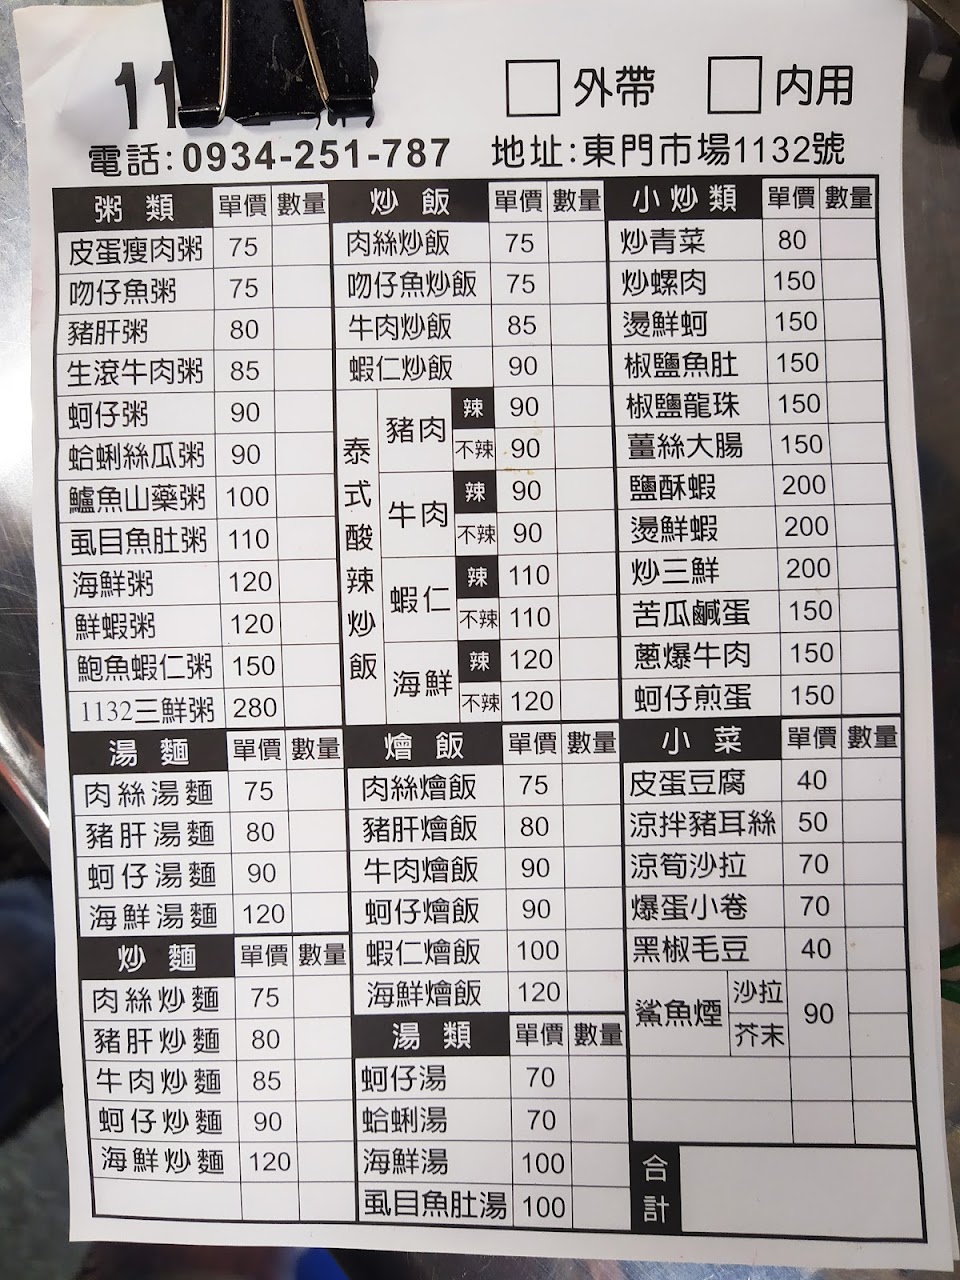 外帶 內用
電話:0934-251-787 地址:東門市場1132號
粥類 單價 數量
皮蛋瘦肉粥 75
吻仔魚粥 75
豬肝粥 80
生滾牛肉粥 85
蚵仔粥 90
蛤蜊絲瓜粥 90
鱸魚山藥粥 100
虱目魚肚粥 110
海鮮粥 120
鮮蝦粥 120
鮑魚蝦仁粥 150
1132三鮮粥 280
湯麵 單價 數量
肉絲湯麵 75
豬肝湯麵 80
蚵仔湯麵 90
海鮮湯麵 120
炒麵 單價 數量
肉絲炒麵 75
豬肝炒麵 80
牛肉炒麵 85
蚵仔炒麵 90
海鮮炒麵 120
炒飯 單價 數量
肉絲炒飯 75
吻仔魚炒飯 75
牛肉炒飯 85
蝦仁炒飯 90
泰式酸辣炒飯
豬肉 辣 90
不辣 90
牛肉 辣 90
不辣 90
蝦仁 辣 110
不辣 110
海鮮 辣 120
不辣 120
燴飯 單價 數量
肉絲燴飯 75
豬肝燴飯 80
牛肉燴飯 90
蚵仔燴飯 90
蝦仁燴飯 100
海鮮燴飯 120
湯類 單價 數量
蚵仔湯 70
蛤蜊湯 70
海鮮湯 100
虱目魚肚湯 100
小炒類 單價 數量
炒青菜 80
炒螺肉 150
燙鮮蚵 150
椒鹽魚肚 150
椒鹽龍珠 150
薑絲大腸 150
鹽酥蝦 200
燙鮮蝦 200
炒三鮮 200
苦瓜鹹蛋 150
蔥爆牛肉 150
蚵仔煎蛋 150
小菜 單價 數量
皮蛋豆腐 40
涼拌豬耳絲 50
涼筍沙拉 70
爆蛋小卷 70
黑椒毛豆 40
鯊魚煙 沙拉 90
芥末
合計